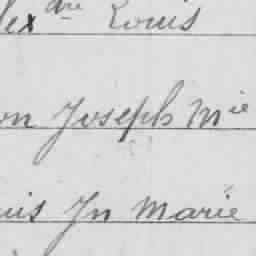 lexdre Louis
on Joseph Mie
uis Jn Marie